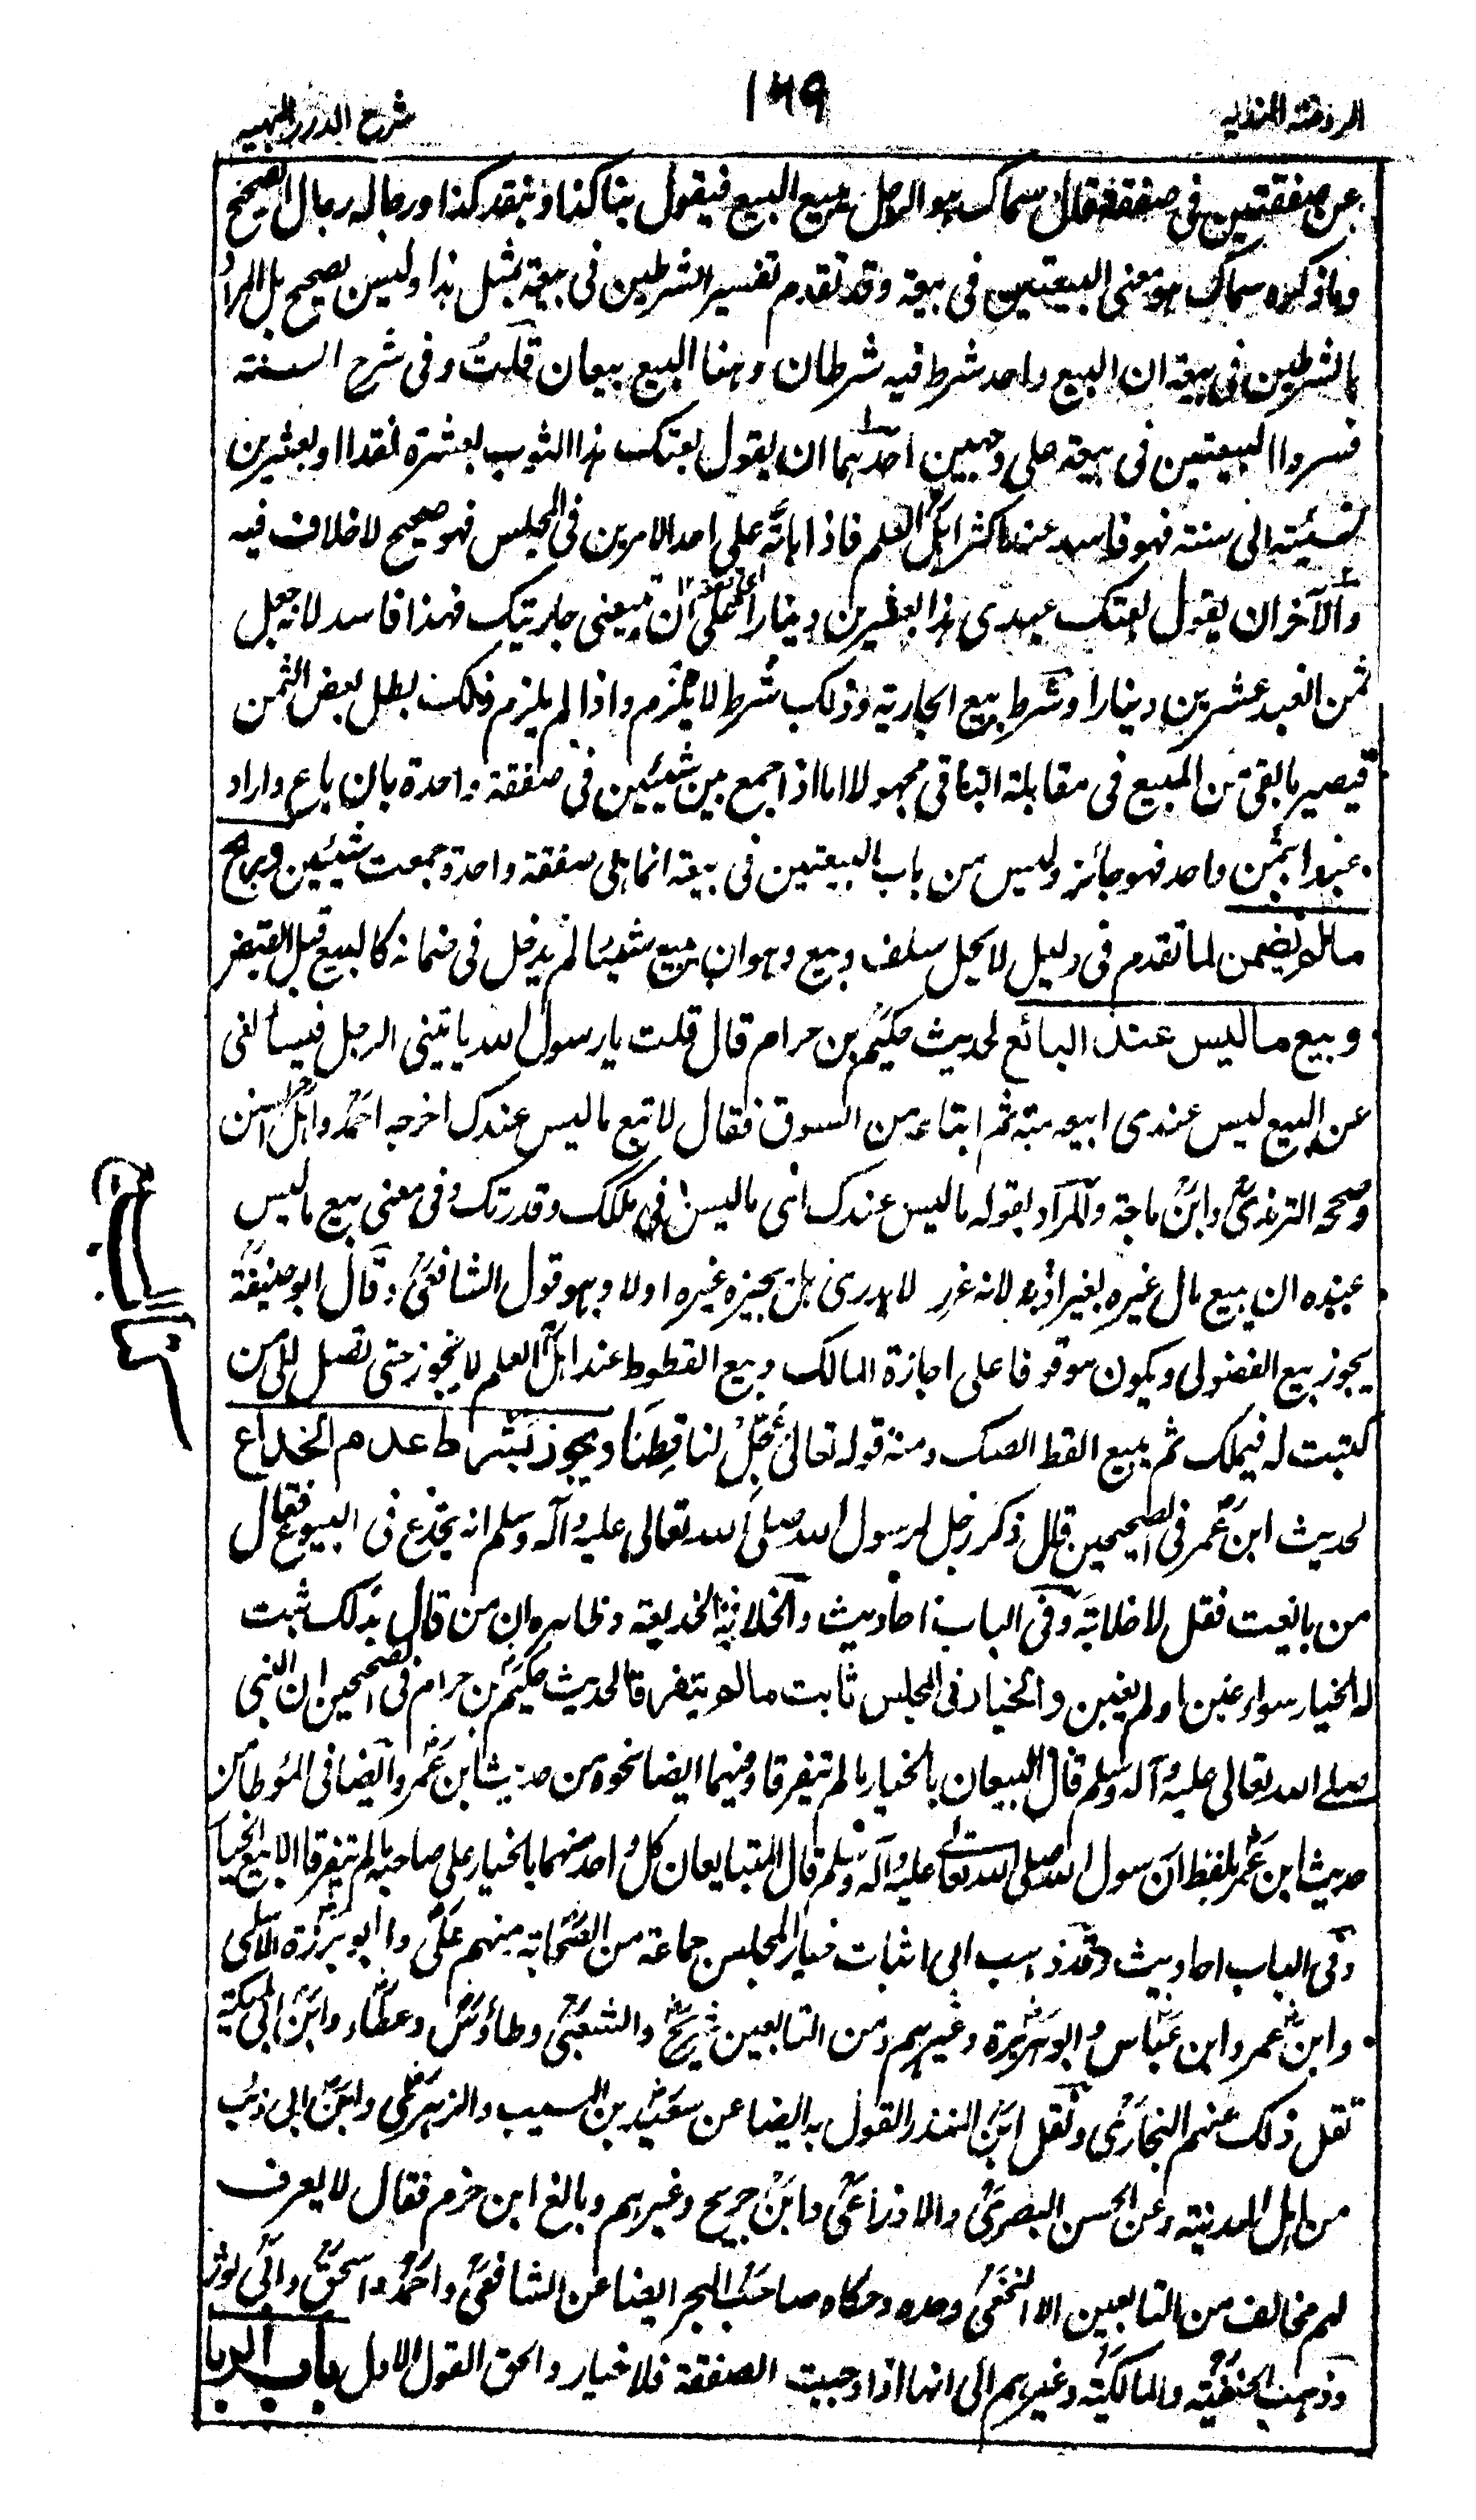 الروضة الندية
١٤٩
شرح الدرر البهية
عن صفقتين في صفقة قال سماك هو الرجل يبيع البيع فيقول بنسا كذا وبنقد كذا ورجاله رجال الصحيح
وما ذكره سماك هو معنى البيعتين في بيعة وقد تقدم تفسير الشرطين في بيعة بمثل هذا وليس بصحيح بل المراد
بالشرطين في بيعة ان البيع واحد شرط فيه شرطان وهنا البيع بيعان قلت وفي شرح السنة
فسروا البيعتين في بيعة على وجهين احدهما ان يقول بعتك هذا الثوب بعشرة نقدا او بعشرين
نسيئة الى سنة فهو فاسد عند اكثر اهل العلم فاذا باته على احد الامرين في المجلس فهو صحيح لا خلاف فيه
والآخر ان يقول بعتك عبدي هذا بعشرين دينارا على ان تبيعني جاريتك فهذا فاسد لانه جعل
ثمن العبد عشرين دينارا وشرط بيع الجارية وذلك شرط لا يلزم واذا لم يلزم ذلك بطل بعض الثمن
فيصير ما بقي من المبيع في مقابلة الباقي مجهولا اما اذا جمع بين شيئين في صفقة واحدة بان باع دارا و
عبدا بثمن واحد فهو جائز وليس من باب البيعتين في بيعة انما هي صفقة واحدة جمعت شيئين وربح
مالم يضمن لما تقدم في دليل لا يحل سلف وبيع وهو ان يبيع شيئا لم يدخل في ضمانه كالبيع قبل القبض
وبيع ما ليس عند البائع لحديث حكيم بن حزام قال قلت يا رسول الله ياتيني الرجل فيسألني
عن البيع ليس عندي ابيعه منه ثم ابتاعه من السوق فقال لا تبع ما ليس عندك اخرجه احمد واهل السنن
وصححه الترمذي وابن ماجة والمراد بقوله ما ليس عندك اي ما ليس في ملكك وقدرتك وفي معنى بيع ما ليس
عنده ان يبيع مال غيره بغير اذنه لانه غرر لا يدري هل يجيزه غيره او لا وهو قول الشافعي وقال ابو حنيفة
يجوز بيع الفضولي ويكون موقوفا على اجازة المالك وبيع القطوط عند اهل العلم لا يجوز حتى تصل الى من
كتبت له فيملك ثم يبيع القط الصك ومنه قوله تعالى عجل لنا قطنا ويجوز بشرط عدم الخداع
لحديث ابن عمر في الصحيحين قال ذكر رجل لرسول الله صلى الله تعالى عليه وآله وسلم انه يخدع في البيوع فقال
من بايعت فقل لا خلابة وفي الباب احاديث والخلابة الخديعة وظاهره ان من قال بذلك ثبت
له الخيار سواء غبن او لم يغبن والخيار في المجلس ثابت مالم يتفرقا لحديث حكيم بن حزام في الصحيحين ان النبي
صلى الله تعالى عليه وآله وسلم قال البيعان بالخيار ما لم يتفرقا وفيهما ايضا نحوه من حديث ابن عمر وايضا في الموطا من
حديث ابن عمر بلفظ ان رسول الله صلى الله تعالى عليه وآله وسلم قال المتبايعان كل واحد منهما بالخيار على صاحبه ما لم يتفرقا الا بيع الخيار
وفي الباب احاديث وقد ذهب الى اثبات خيار المجلس جماعة من الصحابة منهم علي وابو برزة الاسلمي
وابن عمر وابن عباس وابو هريرة وغيرهم ومن التابعين شريح والشعبي وطاؤس وعطاء وابن ابي مليكة
نقل ذلك عنهم البخاري ونقل ابن المنذر القول به ايضا عن سعيد بن المسيب والزهري وابن ابي ذئب
من اهل المدينة وعن الحسن البصري والاوزاعي وابن جريج وغيرهم وبالغ ابن حزم فقال لا يعرف
لهم مخالف من التابعين الا النخعي وحده وحكاه صاحب البحر ايضا عن الشافعي واحمد واسحق وابي ثور
وذهبت الحنفية والمالكية وغيرهم الى انها اذا وجبت الصفقة فلا خيار والحق القول الاول باب الربا